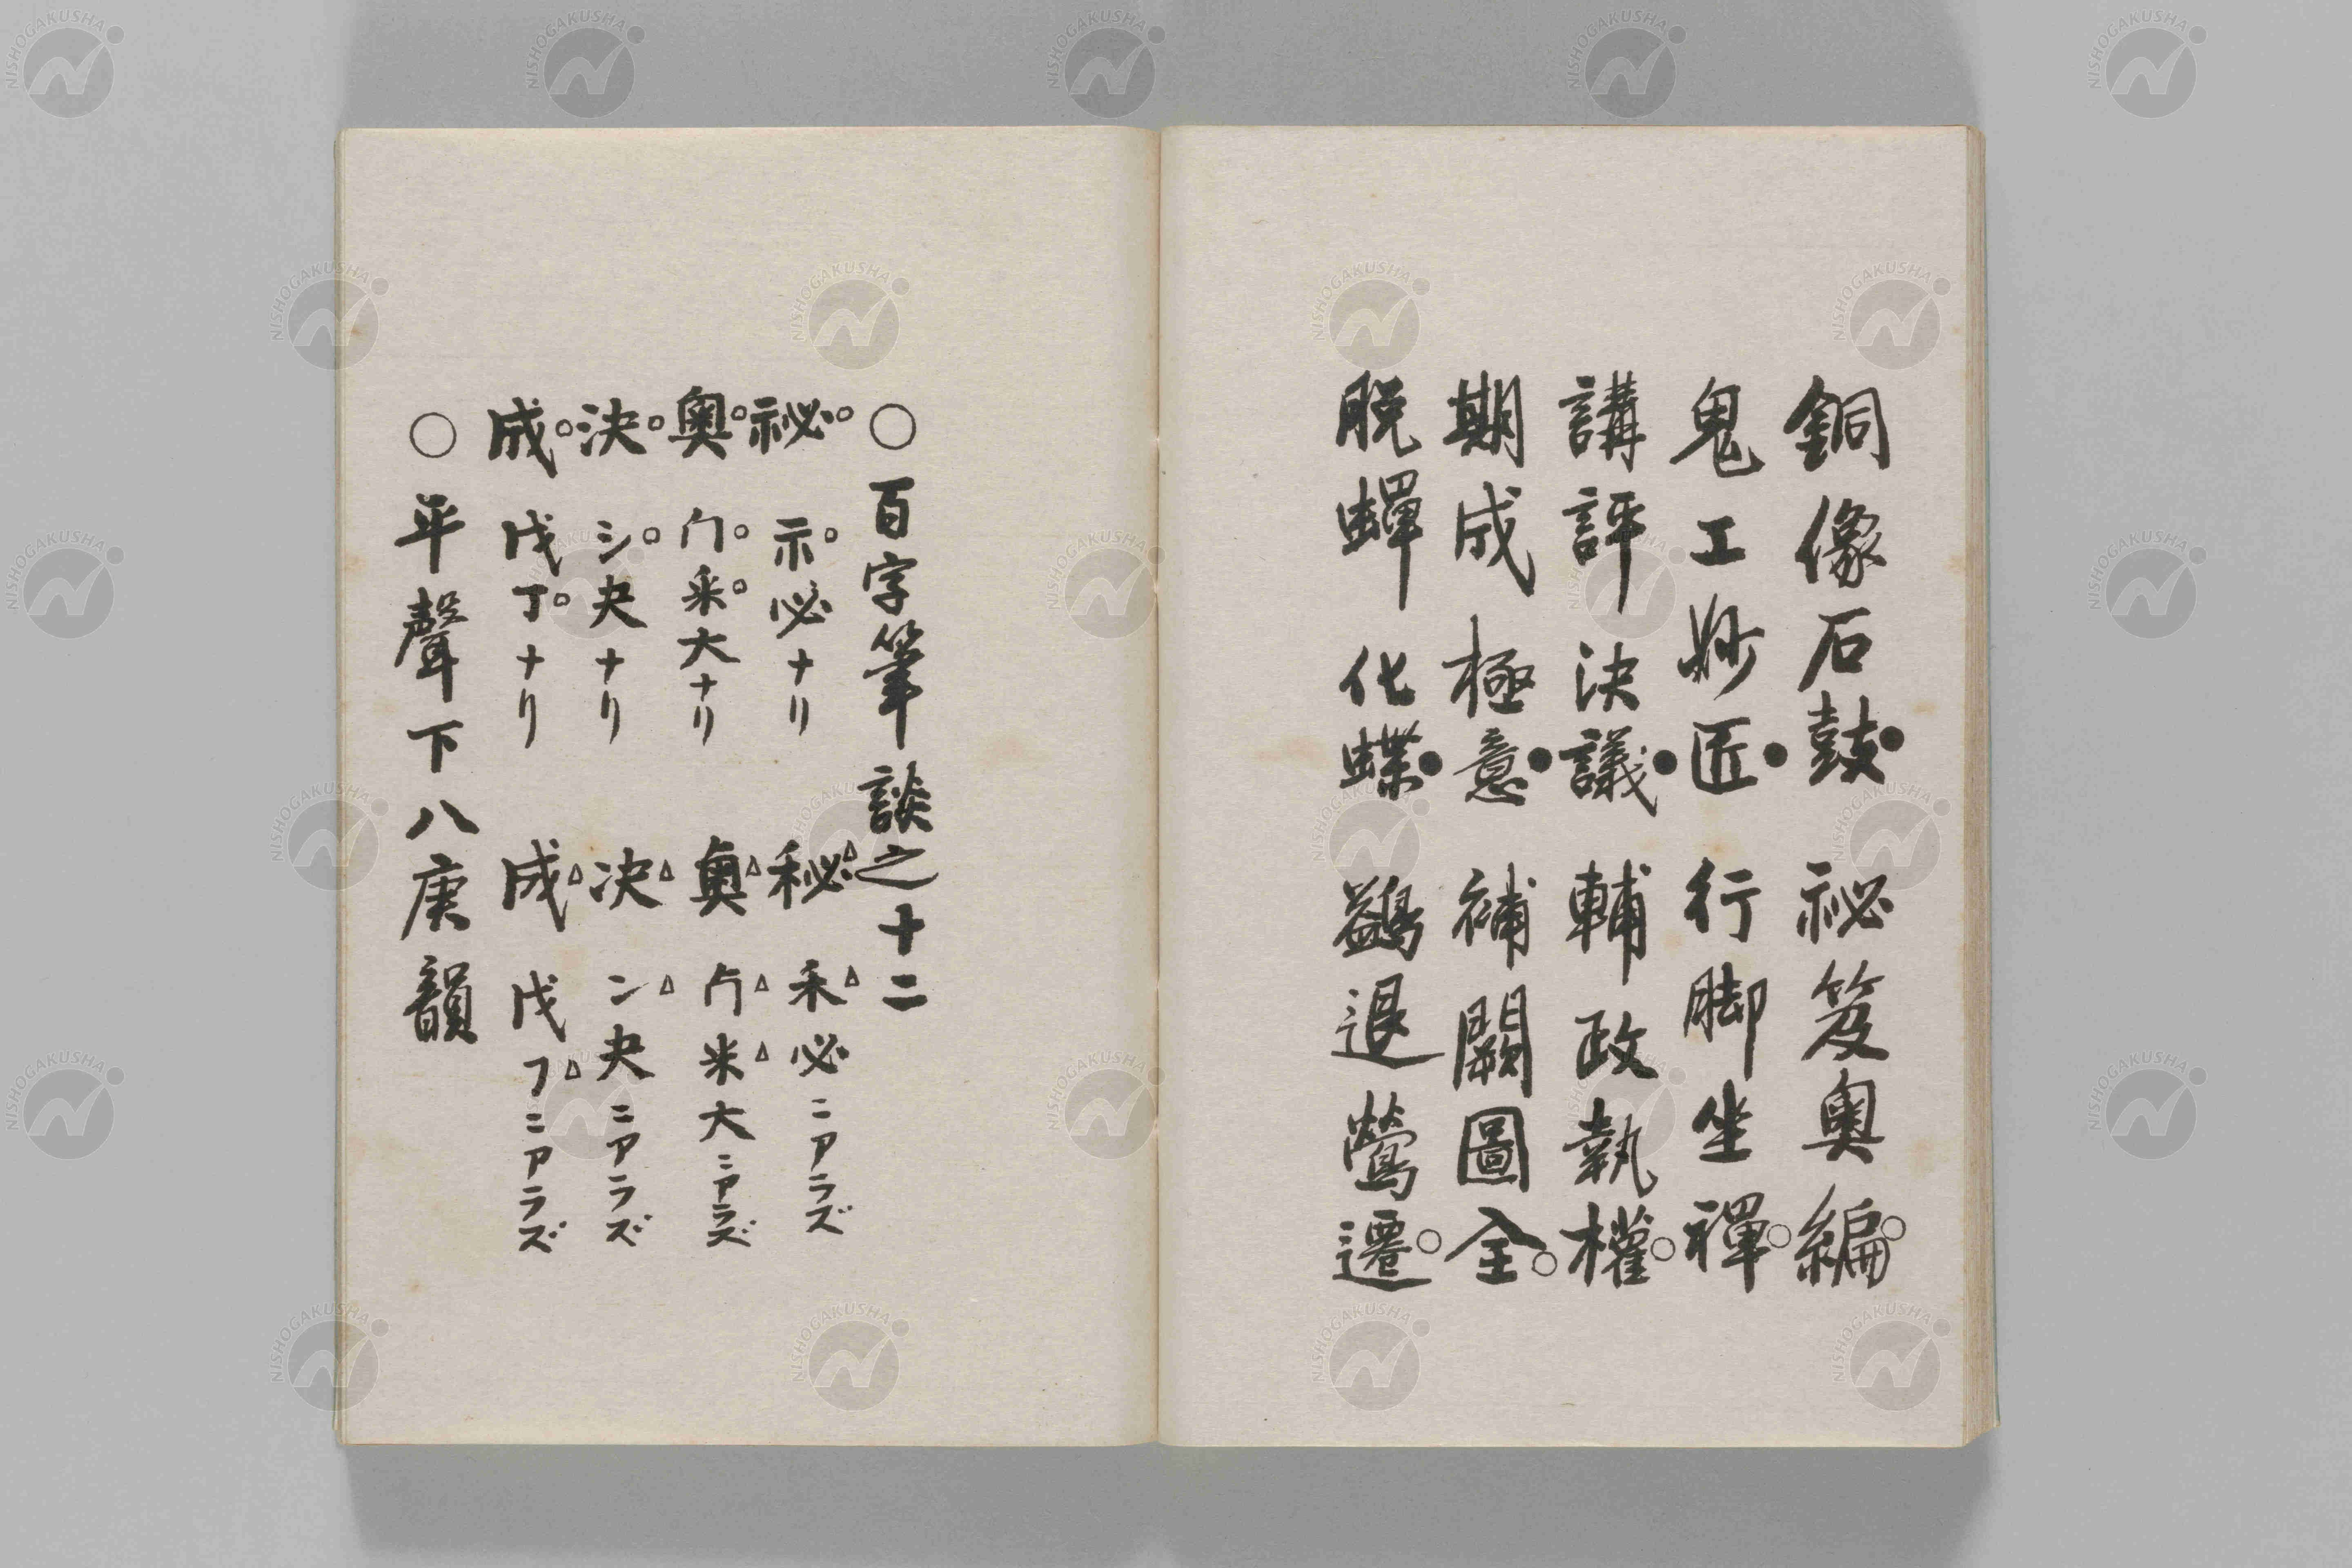 銅像石鼓● 祕笈奧編○
鬼工妙匠● 行脚坐禪○
講評決議● 輔政執權○
期成極意● 補闕圖全○
脱蟬化蝶● 鷁退鶯遷○
○百字筆談之十二
祕○ 示○必ナリ 秘△ 禾△必ニアラズ
奧○ 冂○釆○大ナリ 奥△ 冂△米△大ニアラズ
決○ シ○夬ナリ 决△ ン△夬ニアラズ
成○ 戊丁○ナリ 成△ 戊フ△ニアラズ
○平聲下八庚韻
NISHOGAKUSHA